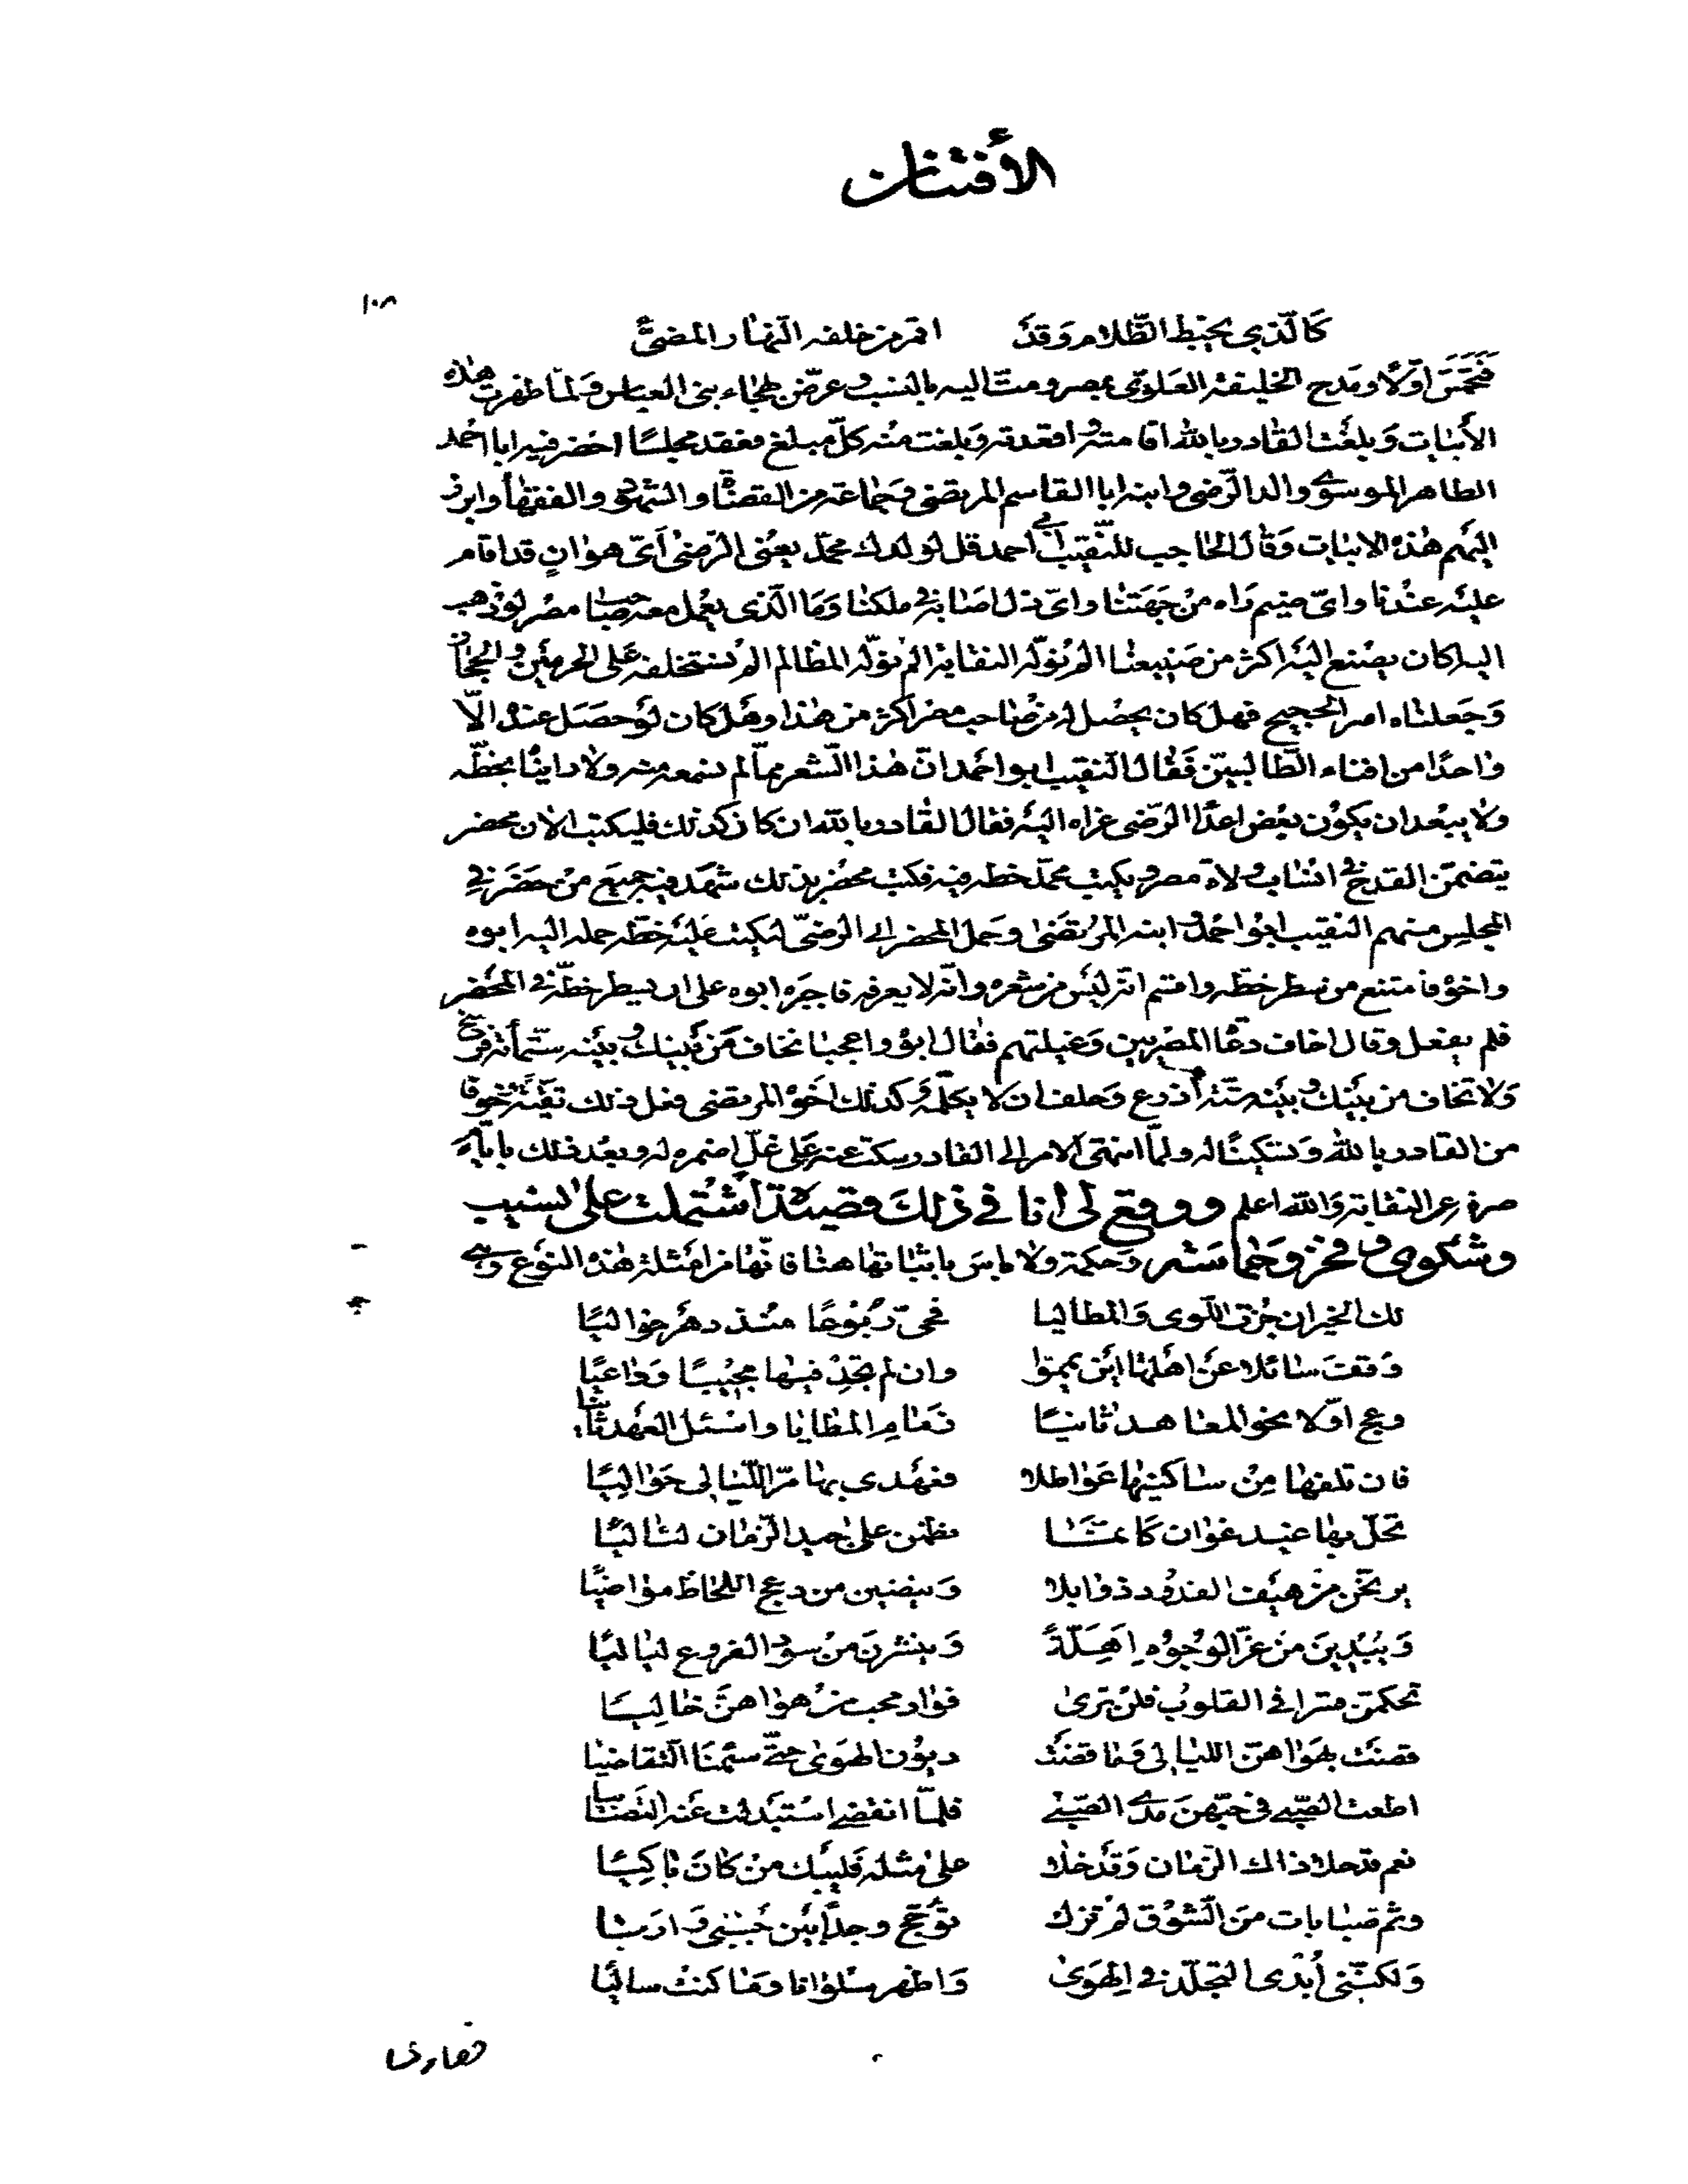 الأفتنان
١٠٨
كالذي يخبط الظلام وقد اقمر من خلفه النهار المضي
اولا ومدح الخليفة العلوي بمصر ومتّ اليه بالنسب وعرّض بهجاء بني العباس ولما ظهرت هذه
الأبيات وبلغت القادر بالله اقامته واقعدته وبلغت منه كل مبلغ فعقد مجلسا احضر فيه ابا احمد
الطاهر الموسوي والد الرضي وابنه ابا القاسم المرتضى وجماعة من القضاة والشهود والفقهاء وابرز
اليهم هذه الابيات وقال الحاجب للنقيب ابي احمد قل لولدك محمد يعني الرضى أيّ هوان قد اقام
عليه عندنا واي ضيم راه من جهتنا واي ذل اصابه في ملكنا وما الذي يعمل معه صاحب مصر لو ذهب
اليه اكان يصنع اليه اكثر من صنيعنا الم نوله النقابة الم نوله المظالم الم نستخلفه على الحرمين والحجاز
وجعلناه امير الحجيج فهل كان يحصل له من صاحب مصر اكثر من هذا وهل كان لو حصل عنده الا
واحدا من افناء الطالبيين فقال النقيب ابو احمد ان هذا الشعر مما لم نسمعه منه ولا راينا بخطه
ولا يبعد ان يكون بعض اعدا الرضي عزاه اليه فقال القادر بالله ان كان كذلك فليكتب الان محضر
يتضمن القدح في انساب ولاة مصر ويكتب محمد خطه فيه فكتب محضر بذلك شهد فيه جميع من حضر في
المجلس منهم النقيب ابو احمد وابنه المرتضى وحمل المحضر الى الرضي ليكتب عليه خطه حمله اليه ابوه
واخوه فامتنع من سطر خطه واقسم انه ليس من شعره وانه لا يعرفه فاجبره ابوه على ان يسطر خطه في المحضر
فلم يفعل وقال اخاف دعا المصريين وغيلتهم فقال ابوه واعجبا تخاف من بينك وبينه ستمأة فرسخ
ولا تخاف من بينك وبينه ستة أذرع وحلف ان لا يكلمه وكذلك اخوه المرتضى فعل ذلك تقية وخوفا
من القادر بالله وتسكينا له ولما انتهى الامر الى القادر سكت عنه على غلّ اضمره له وبعد ذلك بايام
صرفه عن النقابة والله اعلم ووقع لى انا في ذلك قصيدة اشتملت على نسيب
وشكوى وفخر وحماسة وحكمة ولا باس باثباتها هنا فانها من امثلة هذا النوع وهي
لك الخير ان جزت اللوى والمطاليا فحيّ ربوعا منذ دهر خواليا
وقف سائلا عن اهلها اين يمموا وان لم تجد فيها مجيبا وداعيا
وعج اولا نحو المعاهد ثانيا زمام المطايا واسئل العهد ثانيا
فان تلفها من ساكنيها عواطلا فعهدي بها مرّ الليالي حواليا
تحلّ بها غيد غوان كانما نظمن على جيد الزمان لئاليا
يرنحن من هيف القدود ذوابلا وينضين من دعج اللحاظ مواضيا
ويبدين من غرّ الوجوه اهلّة وينشرن من سود الفروع لياليا
تحكمن قسرا في القلوب فلن ترى فواد محب من هواهن خاليا
قضت بهواهن الليالي وما قضت ديون الهوى حتى سئمنا التقاضيا
اطعت الصبي في حبهن مدى الصبي فلما انقضى استبدلت عنه التصابيا
نعم قد حلا ذاك الزمان وقد خلا على مثله فليبك من كان باكيا
وثم صبابات من الشوق لم تزل تؤجج وجدا بين جنبي واريا
ولكنني أبدى التجلد في الهوى واظهر سلوانا وما كنت ساليا